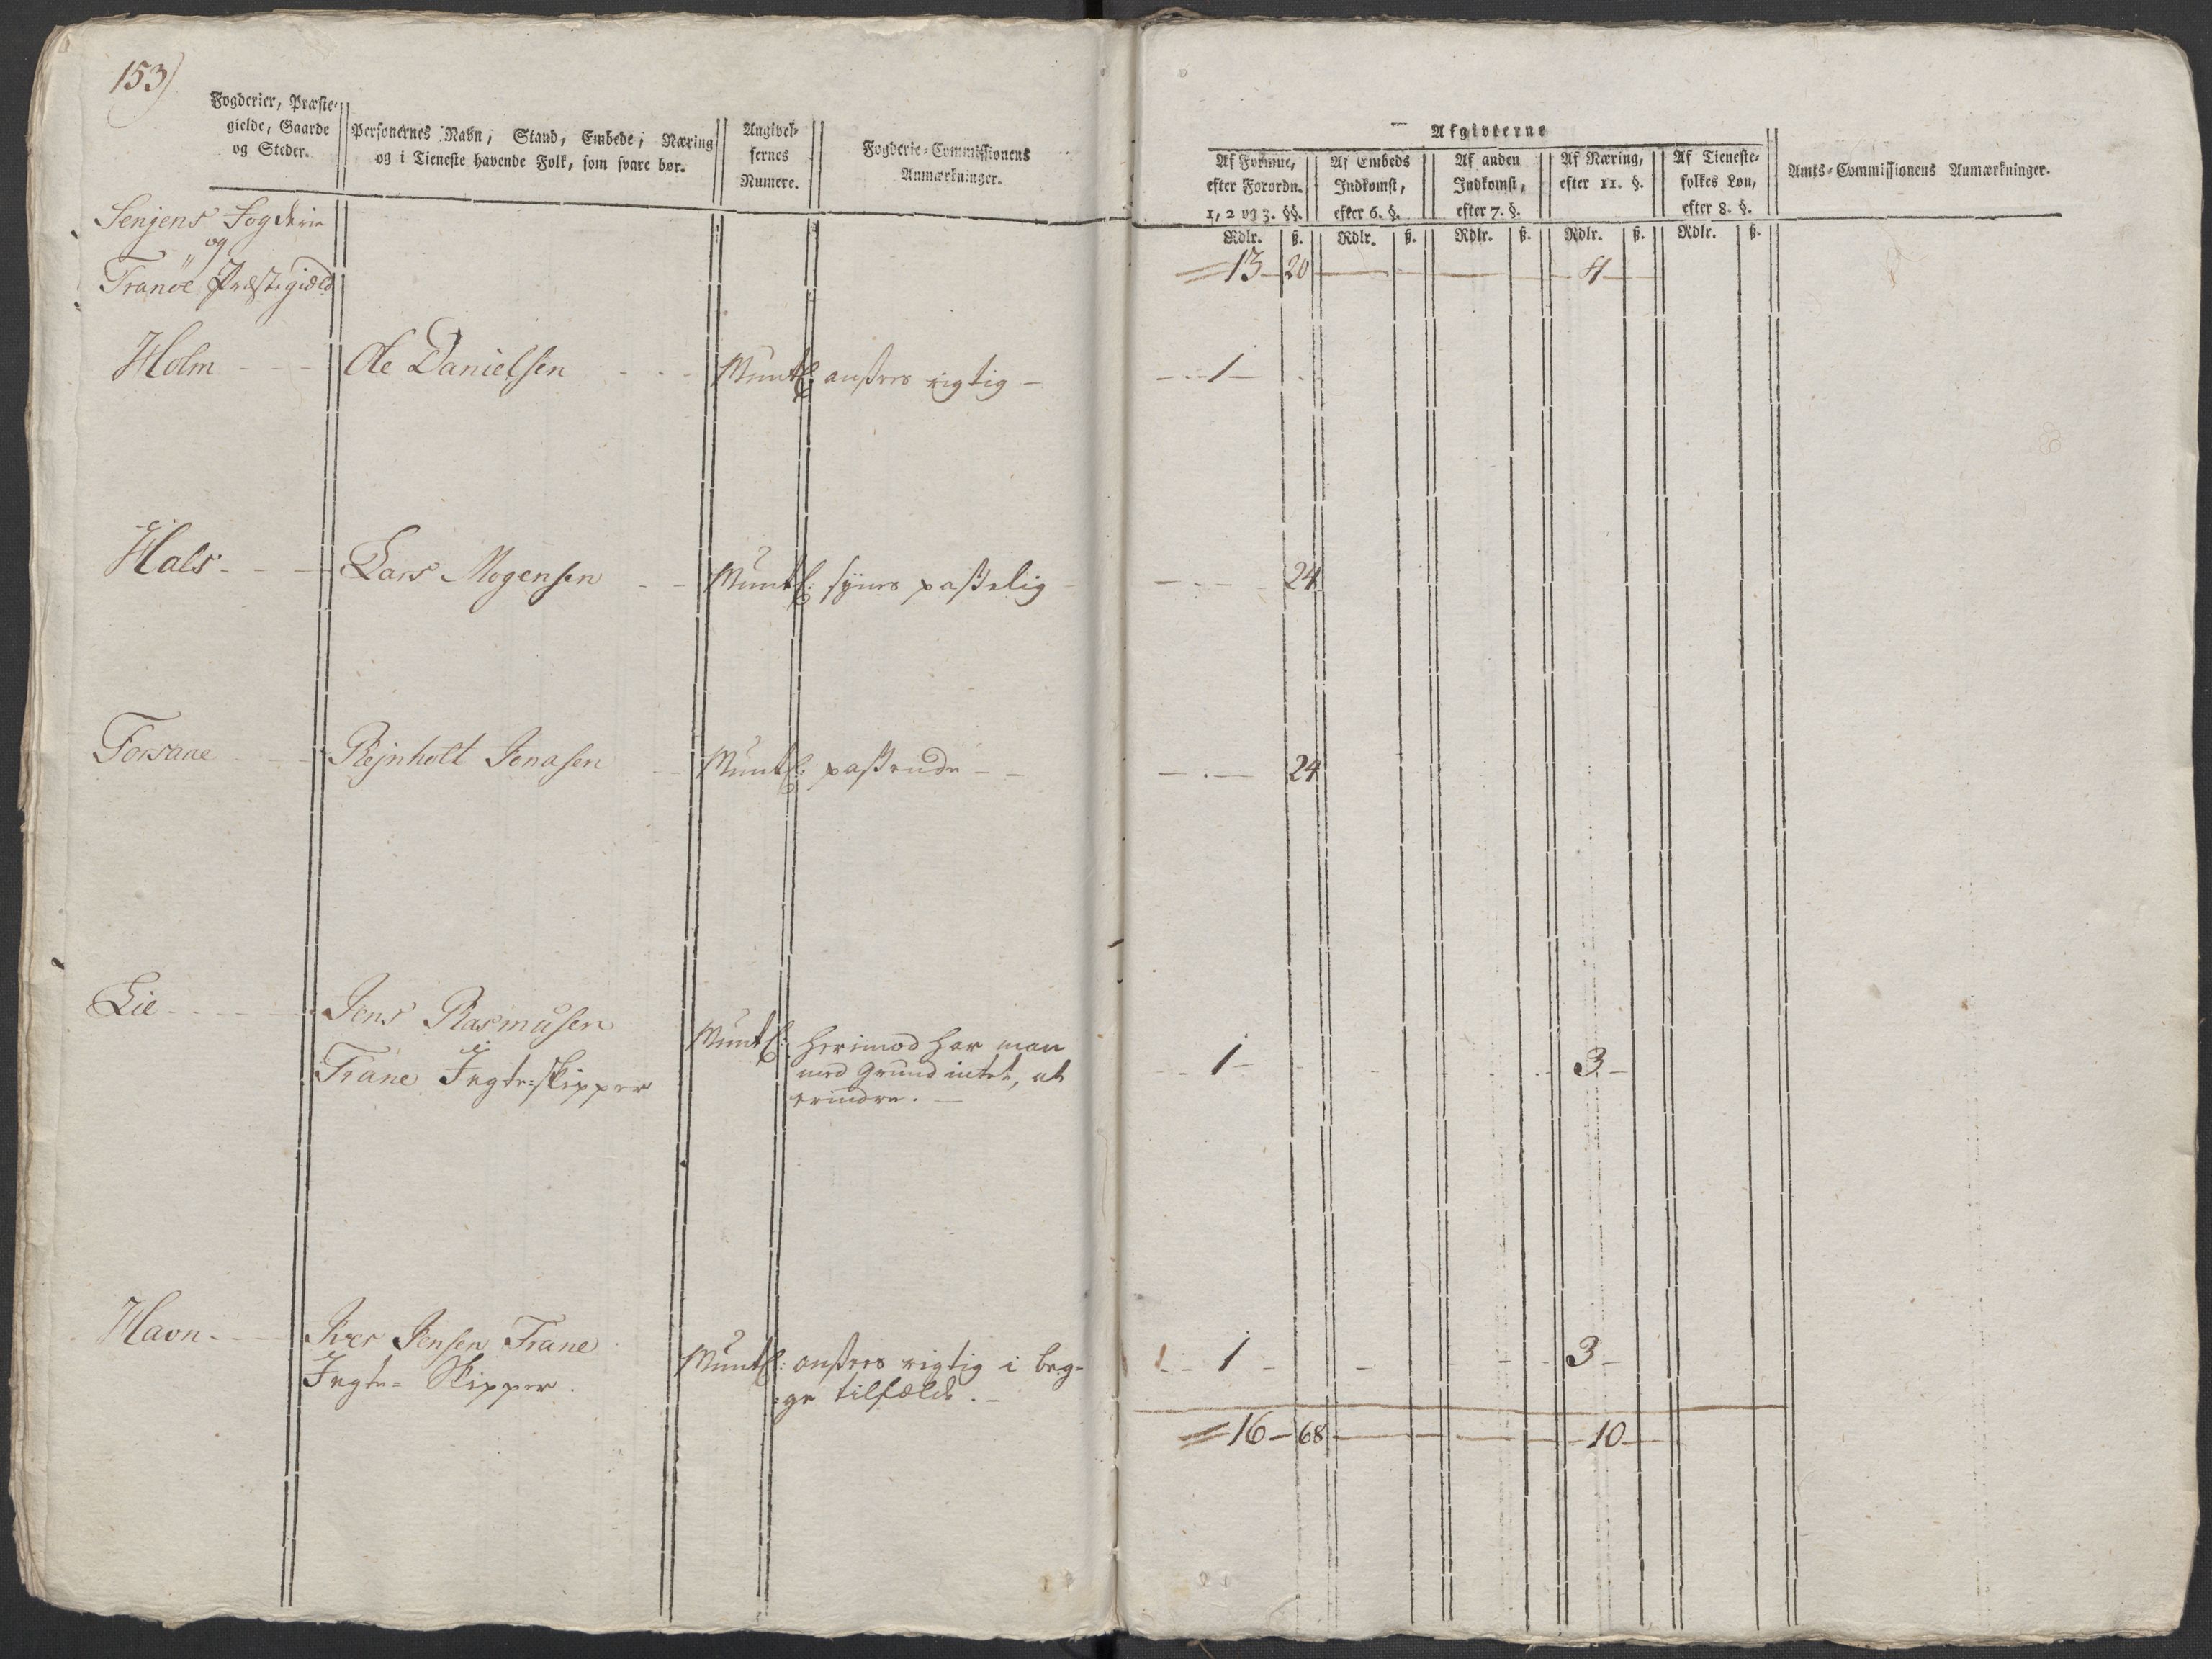 153)
Fogderier, Præste-
gielde, Gaarde
og Steder.
Personernes Navn, Stand, Embede, Næring
og i Tieneste havende Folk, som svare bør.
Angivel-
sernes
Numere.
Fogderie-Commissionens
Anmærkninger.
Afgivterne
Af Formue,
efter Forordn.
1, 2 og 3. §§.
Af Embeds
Indkomst,
efter 6. §.
Af anden
Indkomst,
efter 7. §.
Af Næring,
efter 11. §.
Af Tieneste-
folkes Løn,
efter 8. §.
Amts-Commissionens Anmærkninger.
Rdlr. ß. Rdlr. ß. Rdlr. ß. Rdlr. ß. Rdlr. ß.
Senjens Fogderie
og
Tranöe Præstegield
13 20 4
Holm Ole Danielsen Muntl: ansees rigtig 1
Hals Lars Mogensen Muntl: synes passelig 24
Forsaae Rejnholt Jonasen Muntl: passende 24
Lie Jens Rasmusen
Trane Jegte-skipper
Muntl: herimod har man
med Grund intet, at
erindre.
1 3
Havn Iver Jensen Trane
Jegte-Skipper.
Muntl: ansees rigtig i beg-
ge tilfælde.
1 3
16 68 10